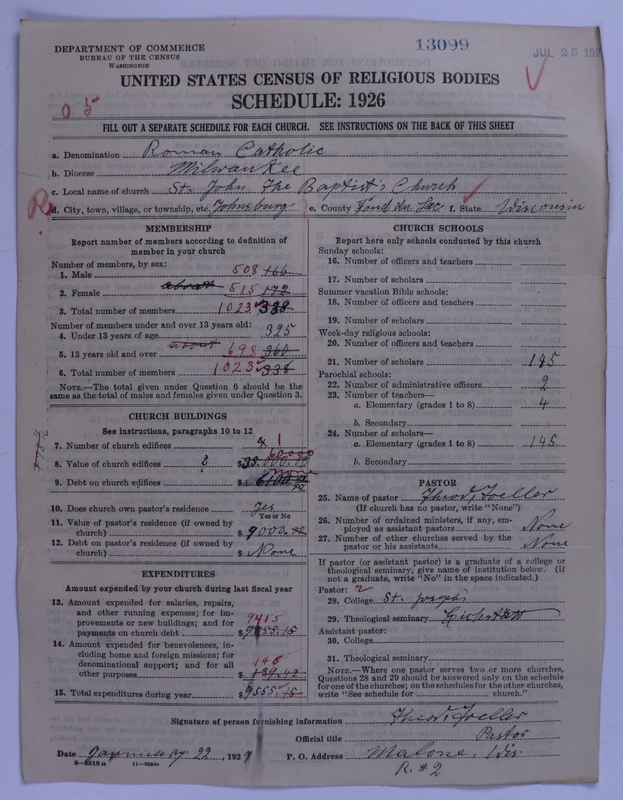 13099
JUL 25 192
DEPARTMENT OF COMMERCE
BUREAU OF THE CENSUS
WASHINGTON
UNITED STATES CENSUS OF RELIGIOUS BODIES
SCHEDULE: 1926
05
FILL OUT A SEPARATE SCHEDULE FOR EACH CHURCH. SEE INSTRUCTIONS ON THE BACK OF THIS SHEET
a. Denomination Roman Catholic
b. Diocese Milwaukee
c. Local name of church St. John The Baptist's Church
R
d. City, town, village, or township, etc. Johnsburg e. County Fond du Lac f. State Wisconsin
MEMBERSHIP
Report number of members according to definition of
member in your church
Number of members, by sex:
1. Male 508 166
2. Female about 515 172
3. Total number of members 1023 338
Number of members under and over 13 years old:
4. Under 13 years of age 325
5. 13 years old and over about 698 360
6. Total number of members 1023 338
NOTE.—The total given under Question 6 should be the
same as the total of males and females given under Question 3.
CHURCH BUILDINGS
See instructions, paragraphs 10 to 12
7. Number of church edifices 1
8. Value of church edifices ? $ 60,000
9. Debt on church edifices $ None
10. Does church own pastor's residence Yes
Yes or No
11. Value of pastor's residence (if owned by
church) $ 9000.
12. Debt on pastor's residence (if owned by
church) $ None
EXPENDITURES
Amount expended by your church during last fiscal year
13. Amount expended for salaries, repairs,
and other running expenses; for im-
provements or new buildings; and for
payments on church debt $ 9415
14. Amount expended for benevolences, in-
cluding home and foreign missions; for
denominational support; and for all
other purposes $ 140 139.42
15. Total expenditures during year $ 9555.15
CHURCH SCHOOLS
Report here only schools conducted by this church
Sunday schools:
16. Number of officers and teachers
17. Number of scholars
Summer vacation Bible schools:
18. Number of officers and teachers
19. Number of scholars
Week-day religious schools:
20. Number of officers and teachers
21. Number of scholars 145
Parochial schools:
22. Number of administrative officers 2
23. Number of teachers—
a. Elementary (grades 1 to 8) 4
b. Secondary
24. Number of scholars—
a. Elementary (grades 1 to 8) 145
b. Secondary
PASTOR
25. Name of pastor Theod. Toeller
(If church has no pastor, write "None")
26. Number of ordained ministers, if any, em-
ployed as assistant pastors None
27. Number of other churches served by the
pastor or his assistants None
If pastor (or assistant pastor) is a graduate of a college or
theological seminary, give name of institution below. (If
not a graduate, write "No" in the space indicated.)
Pastor: 2
28. College St. Joseph
29. Theological seminary
Assistant pastor:
30. College
31. Theological seminary
NOTE.—Where one pastor serves two or more churches,
Questions 28 and 29 should be answered only on the schedule
for one of the churches; on the schedules for the other churches,
write "See schedule for church."
Signature of person furnishing information Theod. Toeller
Official title Pastor
Date January 22, 1927 P. O. Address Malone, Wis.
R. # 2
8-5518a 11-9564